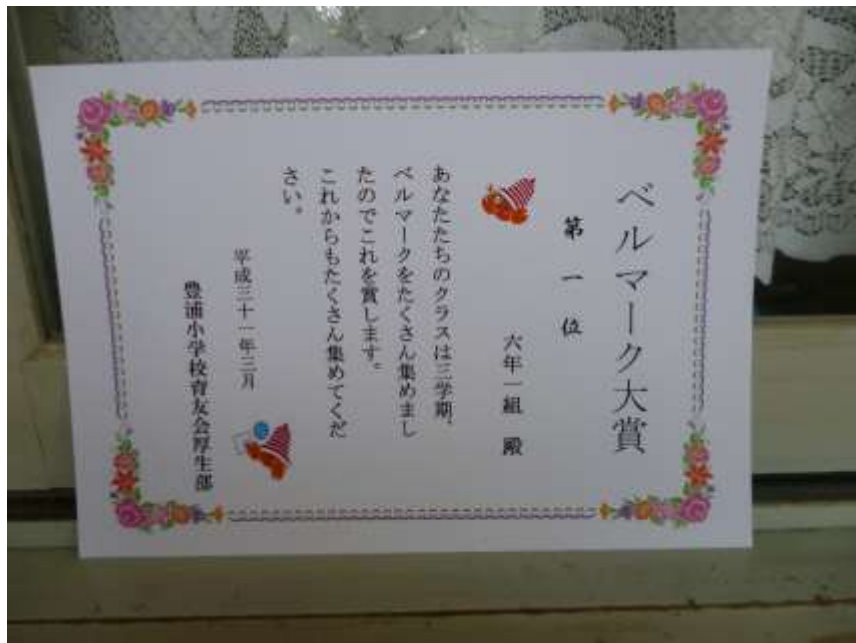 ベルマーク大賞
第一位
六年一組 殿
あなたたちのクラスは三学期、
ベルマークをたくさん集めまし
たのでこれを賞します。
これからもたくさん集めてくだ
さい。
平成三十一年三月
豊浦小学校育友会厚生部